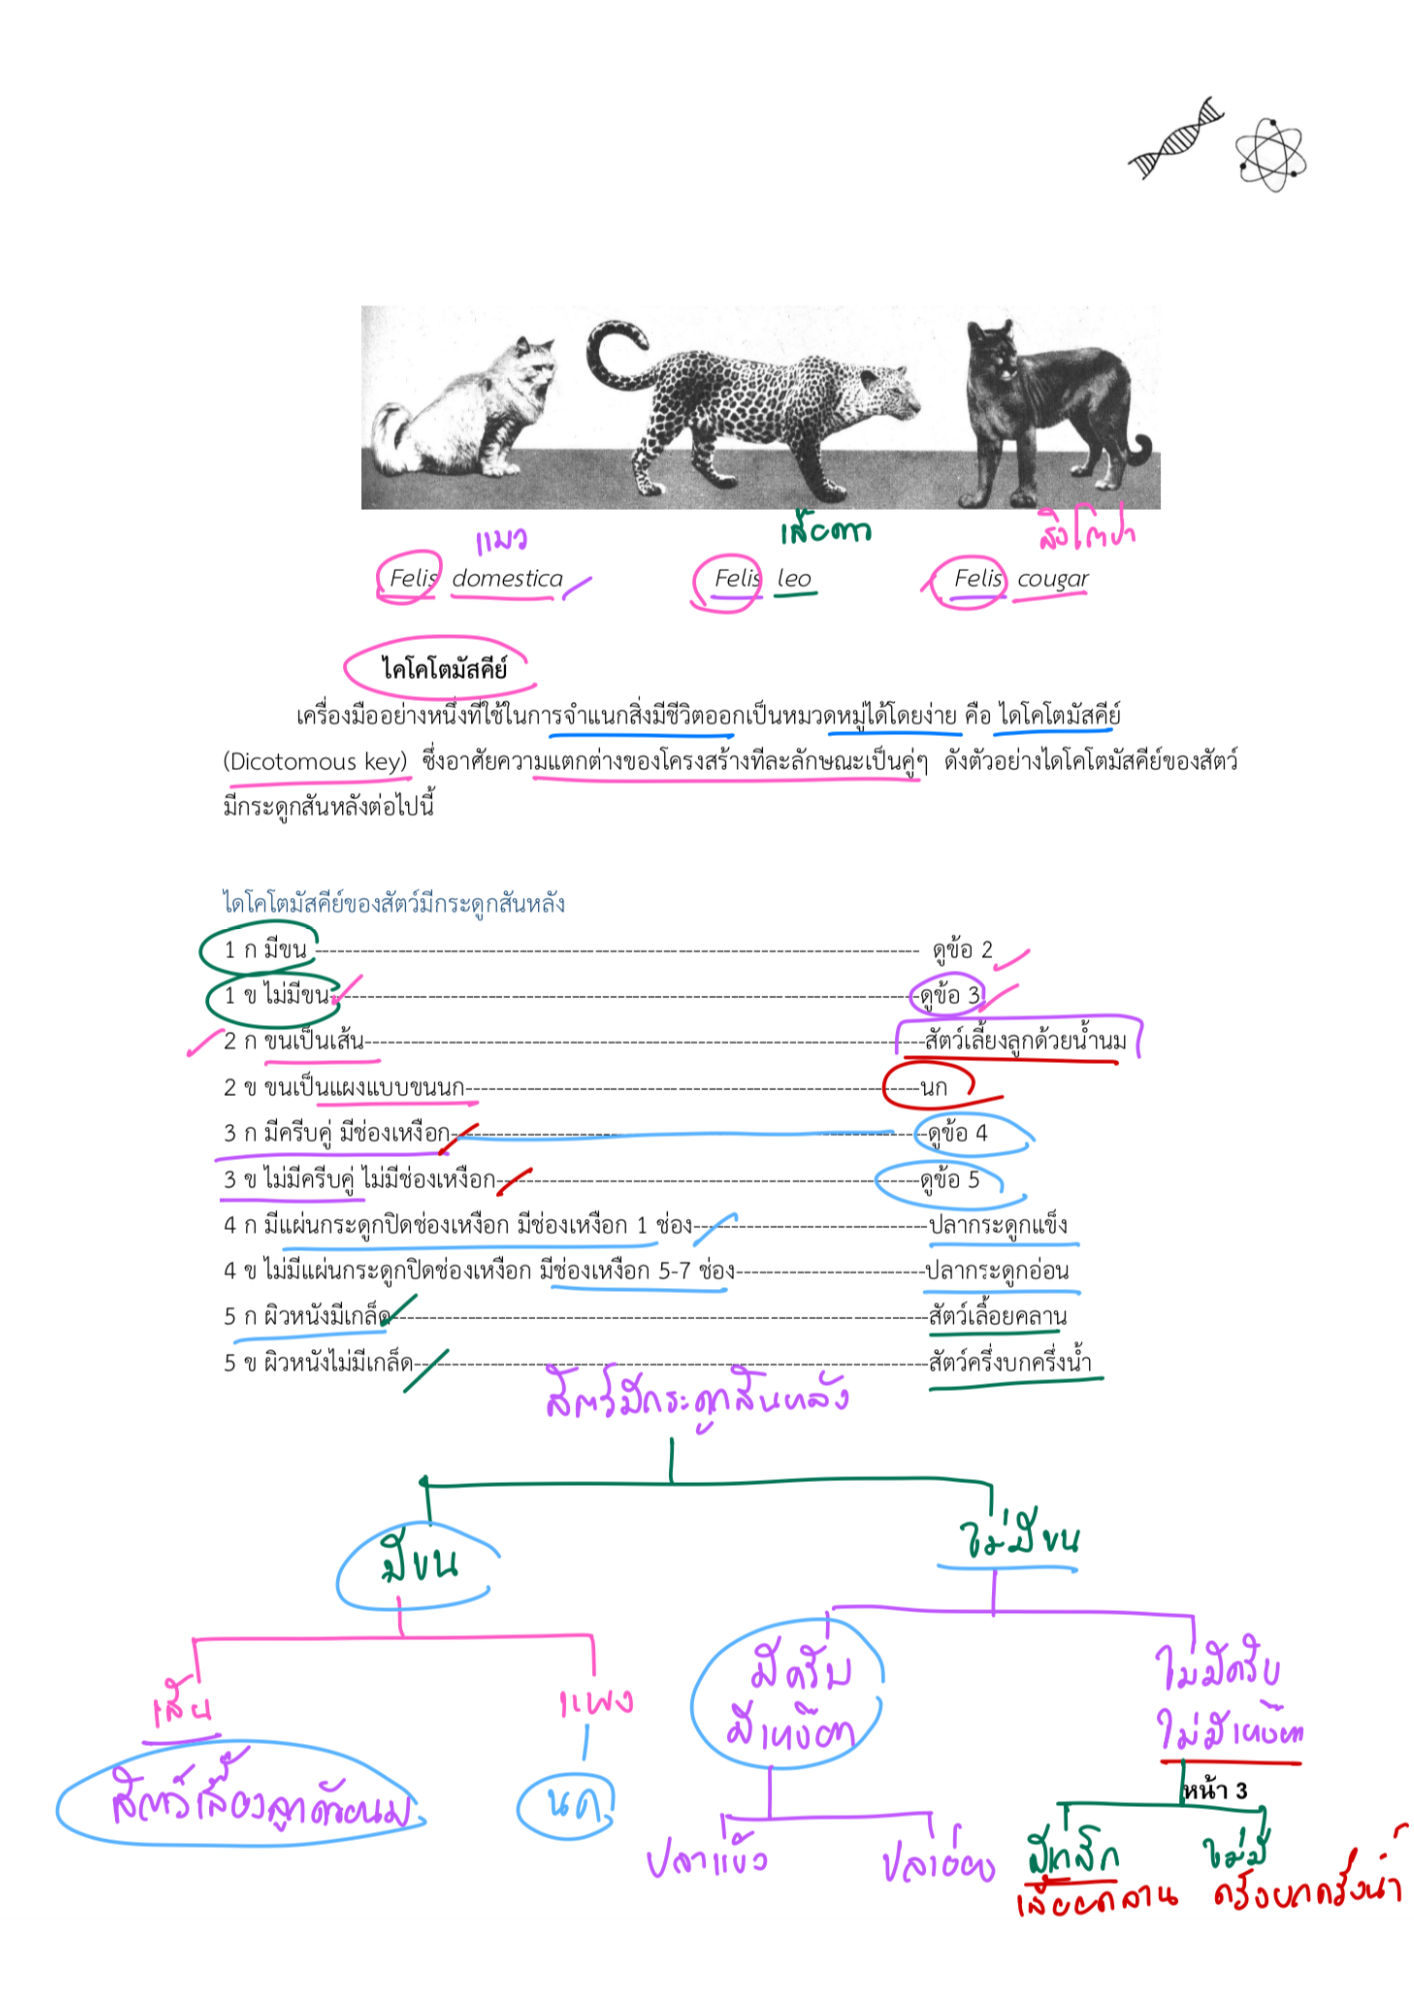 แมว เสือดาว สิงโตป่า
Felis domestica Felis leo Felis cougar
ไคโคโตมัสคีย์
เครื่องมืออย่างหนึ่งที่ใช้ในการจำแนกสิ่งมีชีวิตออกเป็นหมวดหมู่ได้โดยง่าย คือ ไดโคโตมัสคีย์
(Dicotomous key) ซึ่งอาศัยความแตกต่างของโครงสร้างทีละลักษณะเป็นคู่ๆ ดังตัวอย่างไดโคโตมัสคีย์ของสัตว์
มีกระดูกสันหลังต่อไปนี้
ไดโคโตมัสคีย์ของสัตว์มีกระดูกสันหลัง
1 ก มีขน ดูข้อ 2
1 ข ไม่มีขน ดูข้อ 3
2 ก ขนเป็นเส้น สัตว์เลี้ยงลูกด้วยน้ำนม
2 ข ขนเป็นแผงแบบขนนก นก
3 ก มีครีบคู่ มีช่องเหงือก ดูข้อ 4
3 ข ไม่มีครีบคู่ ไม่มีช่องเหงือก ดูข้อ 5
4 ก มีแผ่นกระดูกปิดช่องเหงือก มีช่องเหงือก 1 ช่อง ปลากระดูกแข็ง
4 ข ไม่มีแผ่นกระดูกปิดช่องเหงือก มีช่องเหงือก 5-7 ช่อง ปลากระดูกอ่อน
5 ก ผิวหนังมีเกล็ด สัตว์เลื้อยคลาน
5 ข ผิวหนังไม่มีเกล็ด สัตว์ครึ่งบกครึ่งน้ำ
สัตว์มีกระดูกสันหลัง
มีขน ไม่มีขน
เส้น แผง มีครีบ ไม่มีครีบ
มีเหงือก ไม่มีเหงือก
สัตว์เลี้ยงลูกด้วยนม นก
หน้า 3
ปลาแข็ง ปลาอ่อน มีเกล็ด ไม่มี
เลื้อยคลาน ครึ่งบกครึ่งน้ำ